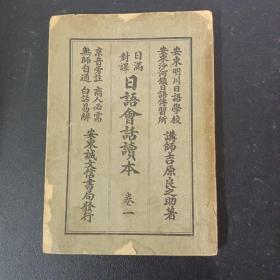 安東明川日語學校
安東沙河鎮日語傳習所
講師吉原良之助著
日滿
對譯
日語會話讀本 卷一
京音旁註 商人必需
無師自通 白話易解
安東誠文信書局發行